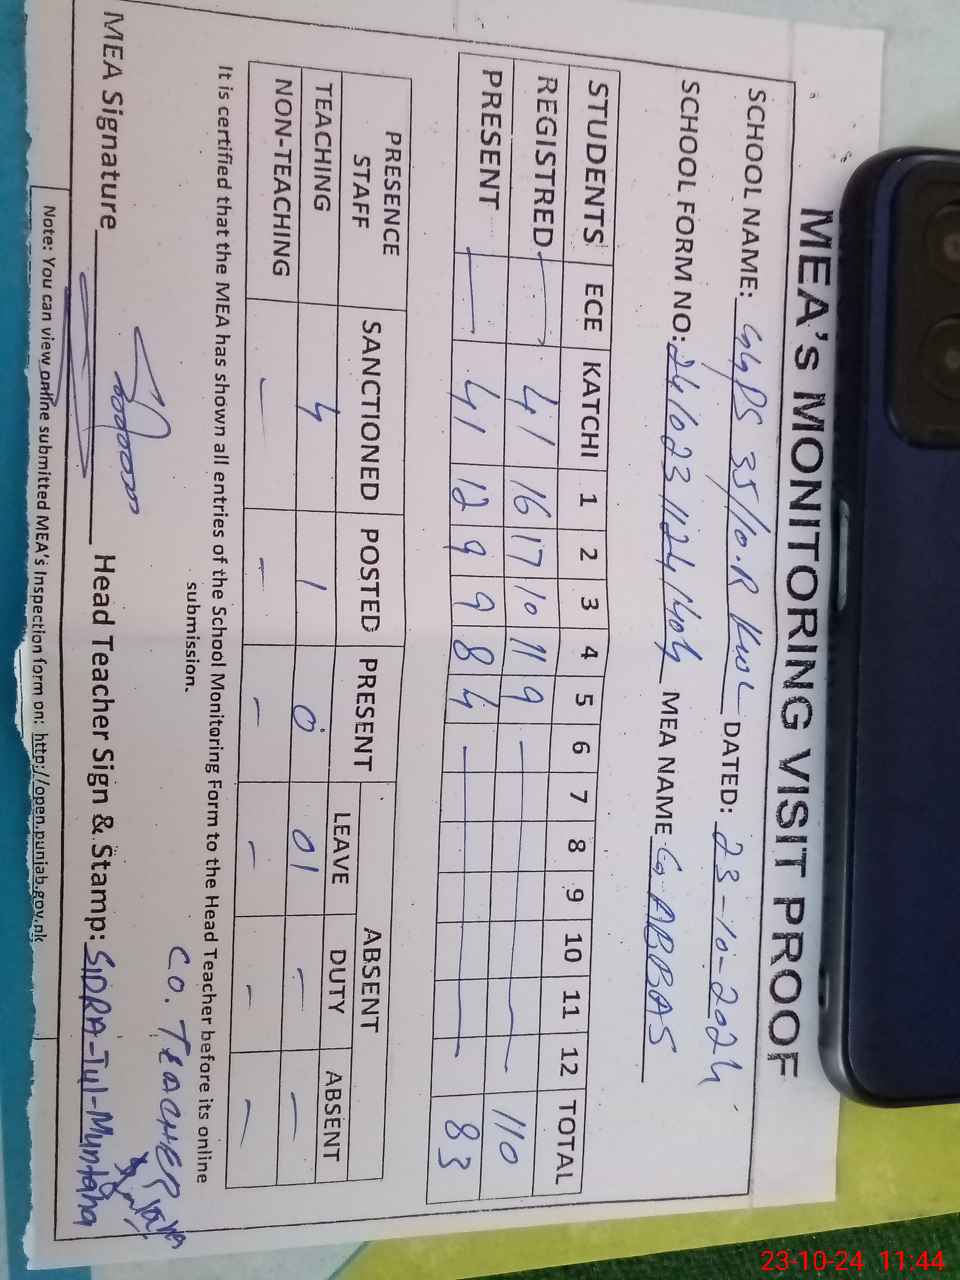 MEA's MONITORING VISIT PROOF
SCHOOL NAME: GGPS 35/10.R KWL DATED: 23-10-2024
SCHOOL FORM NO: MEA NAME G. ABBAS
STUDENTS ECE KATCHI 1 2 3 4 5 6 7 8 9 10 11 12 TOTAL
REGISTRED — 41 16 17 10 11 9 — 110
PRESENT — 41 12 9 9 8 4 — 83
PRESENCE STAFF SANCTIONED POSTED PRESENT ABSENT
LEAVE DUTY ABSENT
TEACHING 4 1 0 01 – –
NON-TEACHING – – – – – –
It is certified that the MEA has shown all entries of the School Monitoring Form to the Head Teacher before its online
submission.
CO. TEACHER
MEA Signature Head Teacher Sign & Stamp: SIDRA-Tul-Muntaha
Note: You can view online submitted MEA's Inspection form on: http://open.punjab.gov.pk
23-10-24 11:44